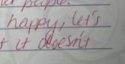 people.
happy, let's
t it doesn't